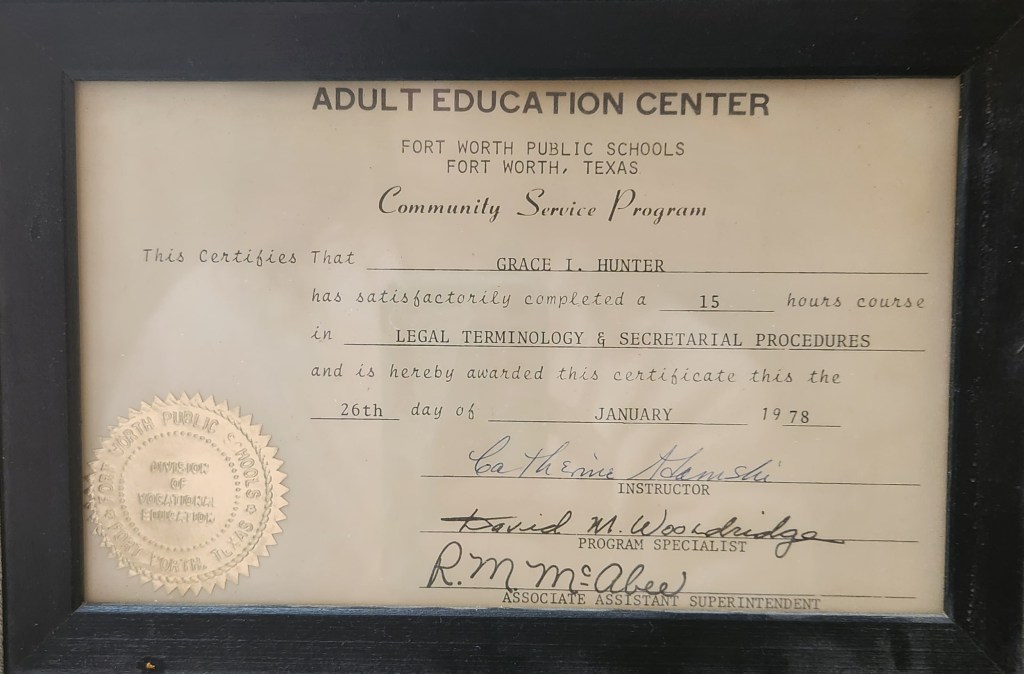 ADULT EDUCATION CENTER
FORT WORTH PUBLIC SCHOOLS
FORT WORTH, TEXAS
Community Service Program
This Certifies That GRACE I. HUNTER
has satisfactorily completed a 15 hours course
in LEGAL TERMINOLOGY & SECRETARIAL PROCEDURES
and is hereby awarded this certificate this the
26th day of JANUARY 1978
Catherine
INSTRUCTOR
David M. Wooldridge
PROGRAM SPECIALIST
R. M. McAbee
ASSOCIATE ASSISTANT SUPERINTENDENT
FORT WORTH PUBLIC SCHOOLS
FORT WORTH, TEXAS
DIVISION
OF
VOCATIONAL
EDUCATION